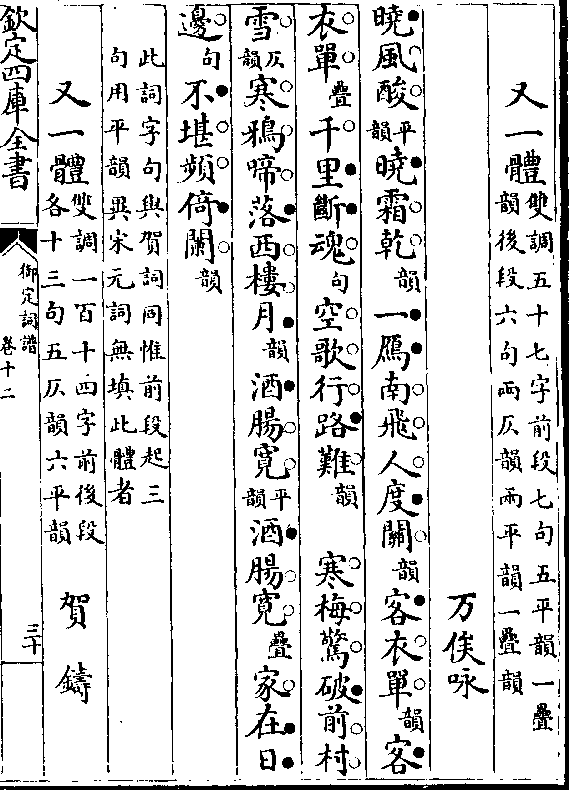 又一體雙調五十七字前段七句五平韻一疊
韻後段六句兩仄韻兩平韻一疊韻
万俟咏
曉風酸平韻曉霜乾韻一鴈南飛人度關韻客衣單韻客
衣單疊千里斷魂句空歌行路難韻 寒梅驚破前村
雪仄韻寒鴉啼落西樓月韻酒腸寛平韻酒腸寛疊家在日
邊句不堪頻倚闌韻
此詞字句與賀詞同惟前段起三
句用平韻異宋元詞無填此體者
又一體雙調一百十四字前後段
各十三句五仄韻六平韻
賀鑄
欽定四庫全書
御定詞譜
卷十二
三十